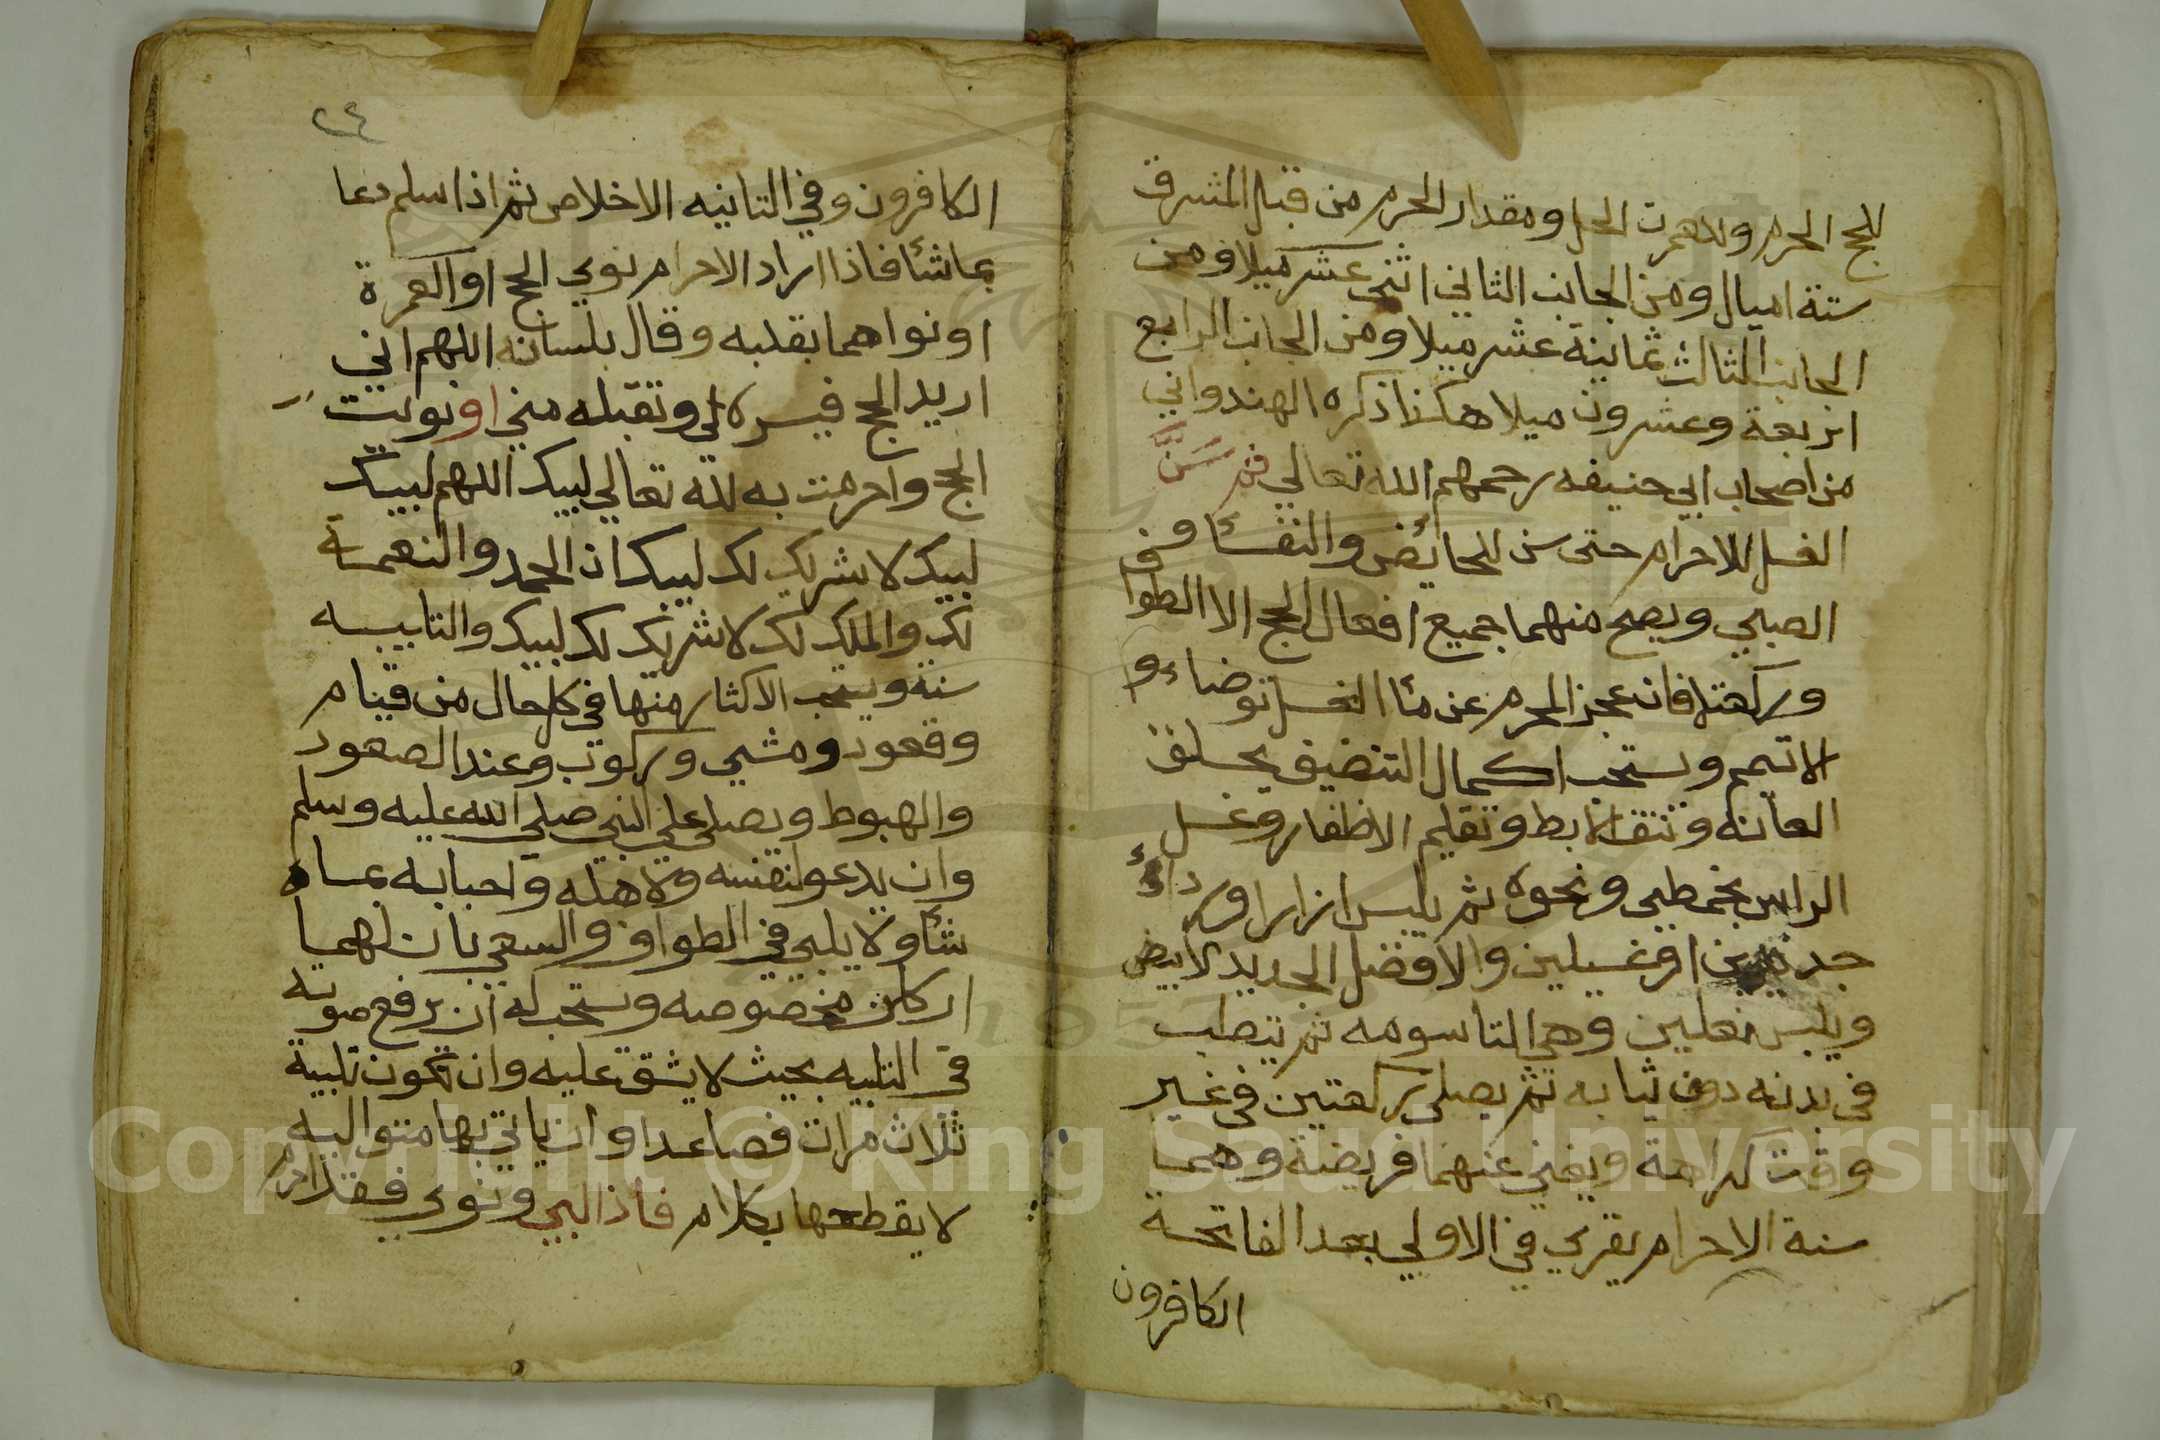 للحج الحرم ولاهمرت الحل ومقدار الحرم من قبل المشرق
ستة اميال ومن الجانب الثاني اثنى عشر ميلا ومن
الجانب الثالث ثمانية عشر ميلا ومن الجانب الرابع
اربعة وعشرون ميلا هكذا ذكره الهندواني
من اصحاب ابي حنيفه رحمهم الله تعالي ثم سَنَّ
الغسل للاحرام حتى سن للحائض والنفسأ في
الصبي ويصح منهما جميع افعال الحج الا الطوا
وركعتاه فان عجز المحرم عن مأ الغسل توضاء و
الا تيمم ويستحب اكمال التنضيف بحلق
العانه ونتف الابط وتقليم الاظفار وغسل
الراس بخطمي ونحوه ثم يلبس ازارا وردأ
جديدين او غسيلين والافضل الجديد الابيض
ويلبس نعلين وهي التاسومه ثم يتطيب
في بدنه دون ثيابه ثم يصلي ركعتين في غير
وقت كراهة ويغني عنهما فريضة وهما
سنة الاحرام يقري في الاولي بعد الفاتحة
الكافرون
٢٤
الكافرون وفي الثانيه الاخلاص ثم اذا سلم دعا
بماشأ فاذا اراد الاحرام نوي الحج او العمرة
او نواهما بقلبه وقال بلسانه اللهم اني
اريد الحج فيسره لي وتقبله مني او نويت
الحج واحرمت به لله تعالي لبيك اللهم لبيك
لبيك لا شريك لك لبيك ان الحمد والنعمة
لك والملك لك لا شريك لك لبيك والتلبيه
سنة ويستحب الاكثار منها في كل حال من قيام
وقعود ومشي وركوب وعند الصعود
والهبوط ويصلي على النبي صلى الله عليه وسلم
وان يدعو لنفسه ولاهله واحبابه بما
شأ ولا يلبي في الطواف والسعي بان لهما
اركان مخصوصه ويستحب له ان يرفع صوته
في التلبيه بحيث لا يشق عليه وان تكون تلبية
ثلاث مرات فصاعدا وان ياتي بها متواليه
لا يقطعها بكلام فاذا لبي ونوي فقد احرم